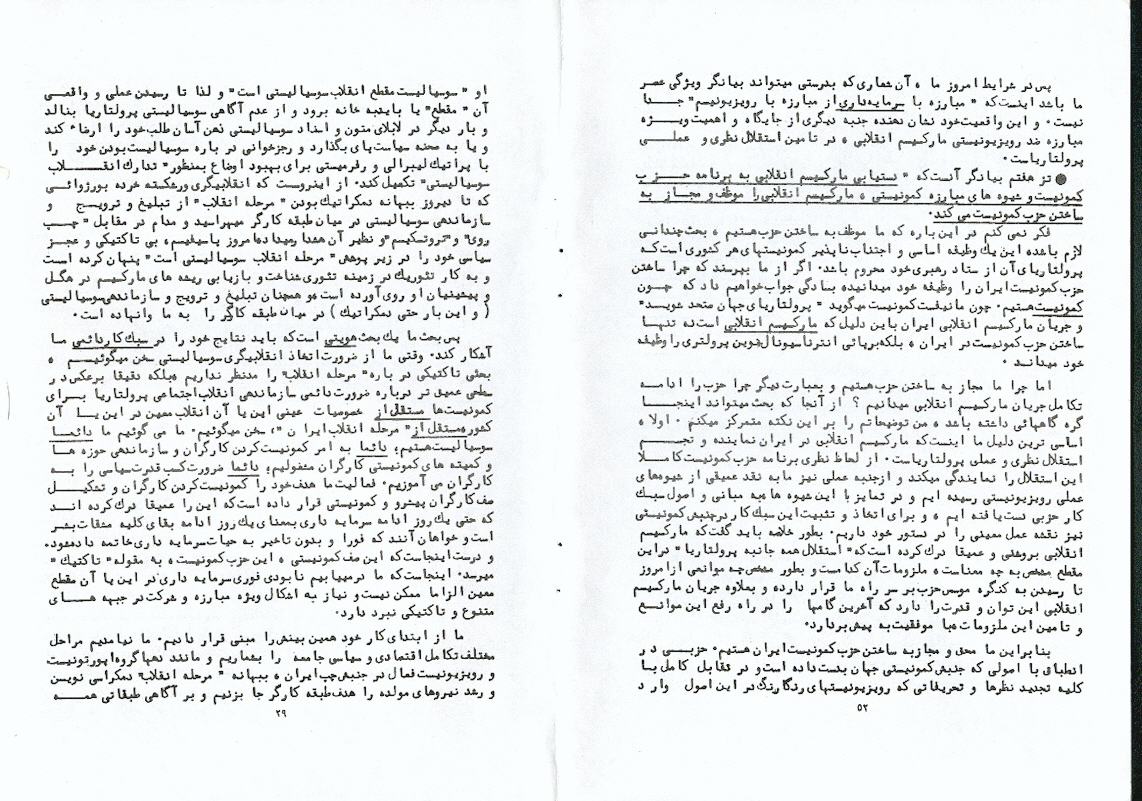 پس در شرایط امروز ما ، آن شعاری که بدرستی میتواند بیانگر ویژگی عصر
ما باشد اینست که " مبارزه با سرمایه داری از مبارزه با رویزیونیسم " جدا
نیست . و این واقعیت خود نشان دهنده جنبه دیگری از جایگاه و اهمیت ویژه
مبارزه ضد رویزیونیستی مارکسیسم انقلابی ، در تامین استقلال نظری و عملی
پرولتاریاست .
● تز هفتم بیانگر آنست که " دستیابی مارکسیسم انقلابی به برنامه حزب
کمونیست و شیوه های مبارزه کمونیستی ، مارکسیسم انقلابی را موظف و مجاز به
ساختن حزب کمونیست می کند .
فکر نمی کنم در این باره که ما موظف به ساختن حزب هستیم ، بحث چندانی
لازم باشد ، این یک وظیفه اساسی و اجتناب ناپذیر کمونیستهای هر کشوری است که
پرولتاریای آن از ستاد رهبری خود محروم باشد . اگر از ما بپرسند که چرا ساختن
حزب کمونیست ایران را وظیفه خود میدانید ، بسادگی جواب خواهیم داد که چون
کمونیست هستیم . چون مانیفست کمونیست میگوید " پرولتاریای جهان متحد شوید "
و جریان مارکسیسم انقلابی ایران باین دلیل که مارکسیسم انقلابی است ، نه تنها
ساختن حزب کمونیست در ایران ، بلکه برپائی انترناسیونال نوین پرولتری را وظیفه
خود میداند .
اما چرا ما مجاز به ساختن حزب هستیم و بعبارت دیگر چرا حزب را ادامه
تکامل جریان مارکسیسم انقلابی میدانیم ؟ از آنجا که بحث میتواند اینجا
گره گاههائی داشته باشد ، من توضیحاتم را بر این نکته متمرکز میکنم . اولا ،
اساسی ترین دلیل ما اینست که مارکسیسم انقلابی در ایران نماینده و تجسم
استقلال نظری و عملی پرولتاریاست . از لحاظ نظری برنامه حزب کمونیست کاملا
این استقلال را نمایندگی میکند و از جنبه عملی نیز ما به نقد عمیقی از شیوه های
عملی رویزیونیستی رسیده ایم و در تمایز با این شیوه ها ، به مبانی و اصول سبک
کار حزبی دست یافته ایم ، و برای اتخاذ و تثبیت این سبک کار در جنبش کمونیستی
نیز نقشه عمل معینی را در دستور خود داریم . بطور خلاصه باید گفت که مارکسیسم
انقلابی بروشنی و عمیقا درک کرده است که " استقلال همه جانبه پرولتاریا " در این
مقطع مشخص به چه معناست ، ملزومات آن کدامست و بطور مشخص چه موانعی از امروز
تا رسیدن به کنگره موسس حزب بر سر راه ما قرار دارد ، و بعلاوه جریان مارکسیسم
انقلابی این توان و قدرت را دارد که آخرین گامها را در راه رفع این موانع
و تامین این ملزومات ، با موفقیت به پیش بردارد .
بنابراین ما محق و مجاز به ساختن حزب کمونیست ایران هستیم . حزبی در
انطباق با اصولی که جنبش کمونیستی جهان بدست داده است و در تقابل کامل با
کلیه تجدید نظرها و تحریفاتی که رویزیونیستهای رنگارنگ در این اصول وارد
۵۲
او " سوسیالیست مقطع انقلاب سوسیالیستی است " و لذا تا رسیدن عملی و واقعی
آن " مقطع " یا باید به خانه برود و از عدم آگاهی سوسیالیستی پرولتاریا بنالد
و بار دیگر در لابلای متون و اسناد سوسیالیستی ذهن آسان طلب خود را ارضاء کند
و یا به صحنه سیاست پای بگذارد و رجزخوانی در باره سوسیالیست بودن خود را
با پراتیک لیبرالی و رفرمیستی برای بهبود اوضاع بمنظور " تدارک انقلاب
سوسیالیستی " تکمیل کند . از اینروست که انقلابیگری ورشکسته خرده بورژوائی
که تا دیروز ببهانه دمکراتیک بودن " مرحله انقلاب " از تبلیغ و ترویج و
سازماندهی سوسیالیستی در میان طبقه کارگر میهراسید و مدام در مقابل " چپ
روی " و " تروتسکیسم " و نظیر آن هشدار میداد ، امروز پاسیفیسم ، بی تاکتیکی و عجز
سیاسی خود را در زیر پوشش " مرحله انقلاب سوسیالیستی است " پنهان کرده است
و به کار تئوریک در زمینه تئوری شناخت و بازیابی ریشه های مارکسیسم در هگل
و پیشینیان او روی آورده است ، و همچنان تبلیغ و ترویج و سازماندهی سوسیالیستی
( و این بار حتی دمکراتیک ) در میان طبقه کارگر را به ما وانهاده است .
پس بحث ما یک بحث هویتی است که باید نتایج خود را در سبک کار دائمی ما
آشکار کند . وقتی ما از ضرورت اتخاذ انقلابیگری سوسیالیستی سخن میگوئیم ،
بحثی تاکتیکی در باره " مرحله انقلاب " را مدنظر نداریم ، بلکه دقیقا برعکس در
سطحی عمیق تر درباره ضرورت دائمی سازماندهی انقلاب اجتماعی پرولتاریا برای
کمونیست ها مستقل از خصوصیات عینی این یا آن انقلاب معین در این یا آن
کشور ، مستقل از " مرحله انقلاب ایران " ، سخن میگوئیم . ما می گوئیم ما دائما
سوسیالیست هستیم ، دائما به امر کمونیست کردن کارگران و سازماندهی حوزه ها
و کمیته های کمونیستی کارگران مشغولیم ، دائما ضرورت کسب قدرت سیاسی را به
کارگران می آموزیم . فعالیت ما هدف خود را کمونیست کردن کارگران و تشکیل
صف کارگران پیشرو و کمونیستی قرار داده است که این را عمیقا درک کرده اند
که حتی یک روز ادامه سرمایه داری بمعنای یک روز ادامه بقای کلیه مشقات بشر
است و خواهان آنند که فورا و بدون تاخیر به حیات سرمایه داری خاتمه داده شود .
و درست اینجاست که این صف کمونیستی ، این حزب کمونیست ، به مقوله " تاکتیک "
میرسد . اینجاست که ما درمییابیم نابودی فوری سرمایه داری در این یا آن مقطع
معین الزاما ممکن نیست و نیاز به اشکال ویژه مبارزه و شرکت در جبهه های
متنوع و تاکتیکی نبرد دارد .
ما از ابتدای کار خود همین بینش را مبنی قرار دادیم . ما نیامدیم مراحل
مختلف تکامل اقتصادی و سیاسی جامعه را بشماریم و مانند دهها گروه اپورتونیست
و رویزیونیست فعال در جنبش چپ ایران ، ببهانه " مرحله انقلاب " دمکراسی نویسن
و رشد نیروهای مولده را هدف طبقه کارگر جا بزنیم و بر آگاهی طبقاتی همه
۲۹